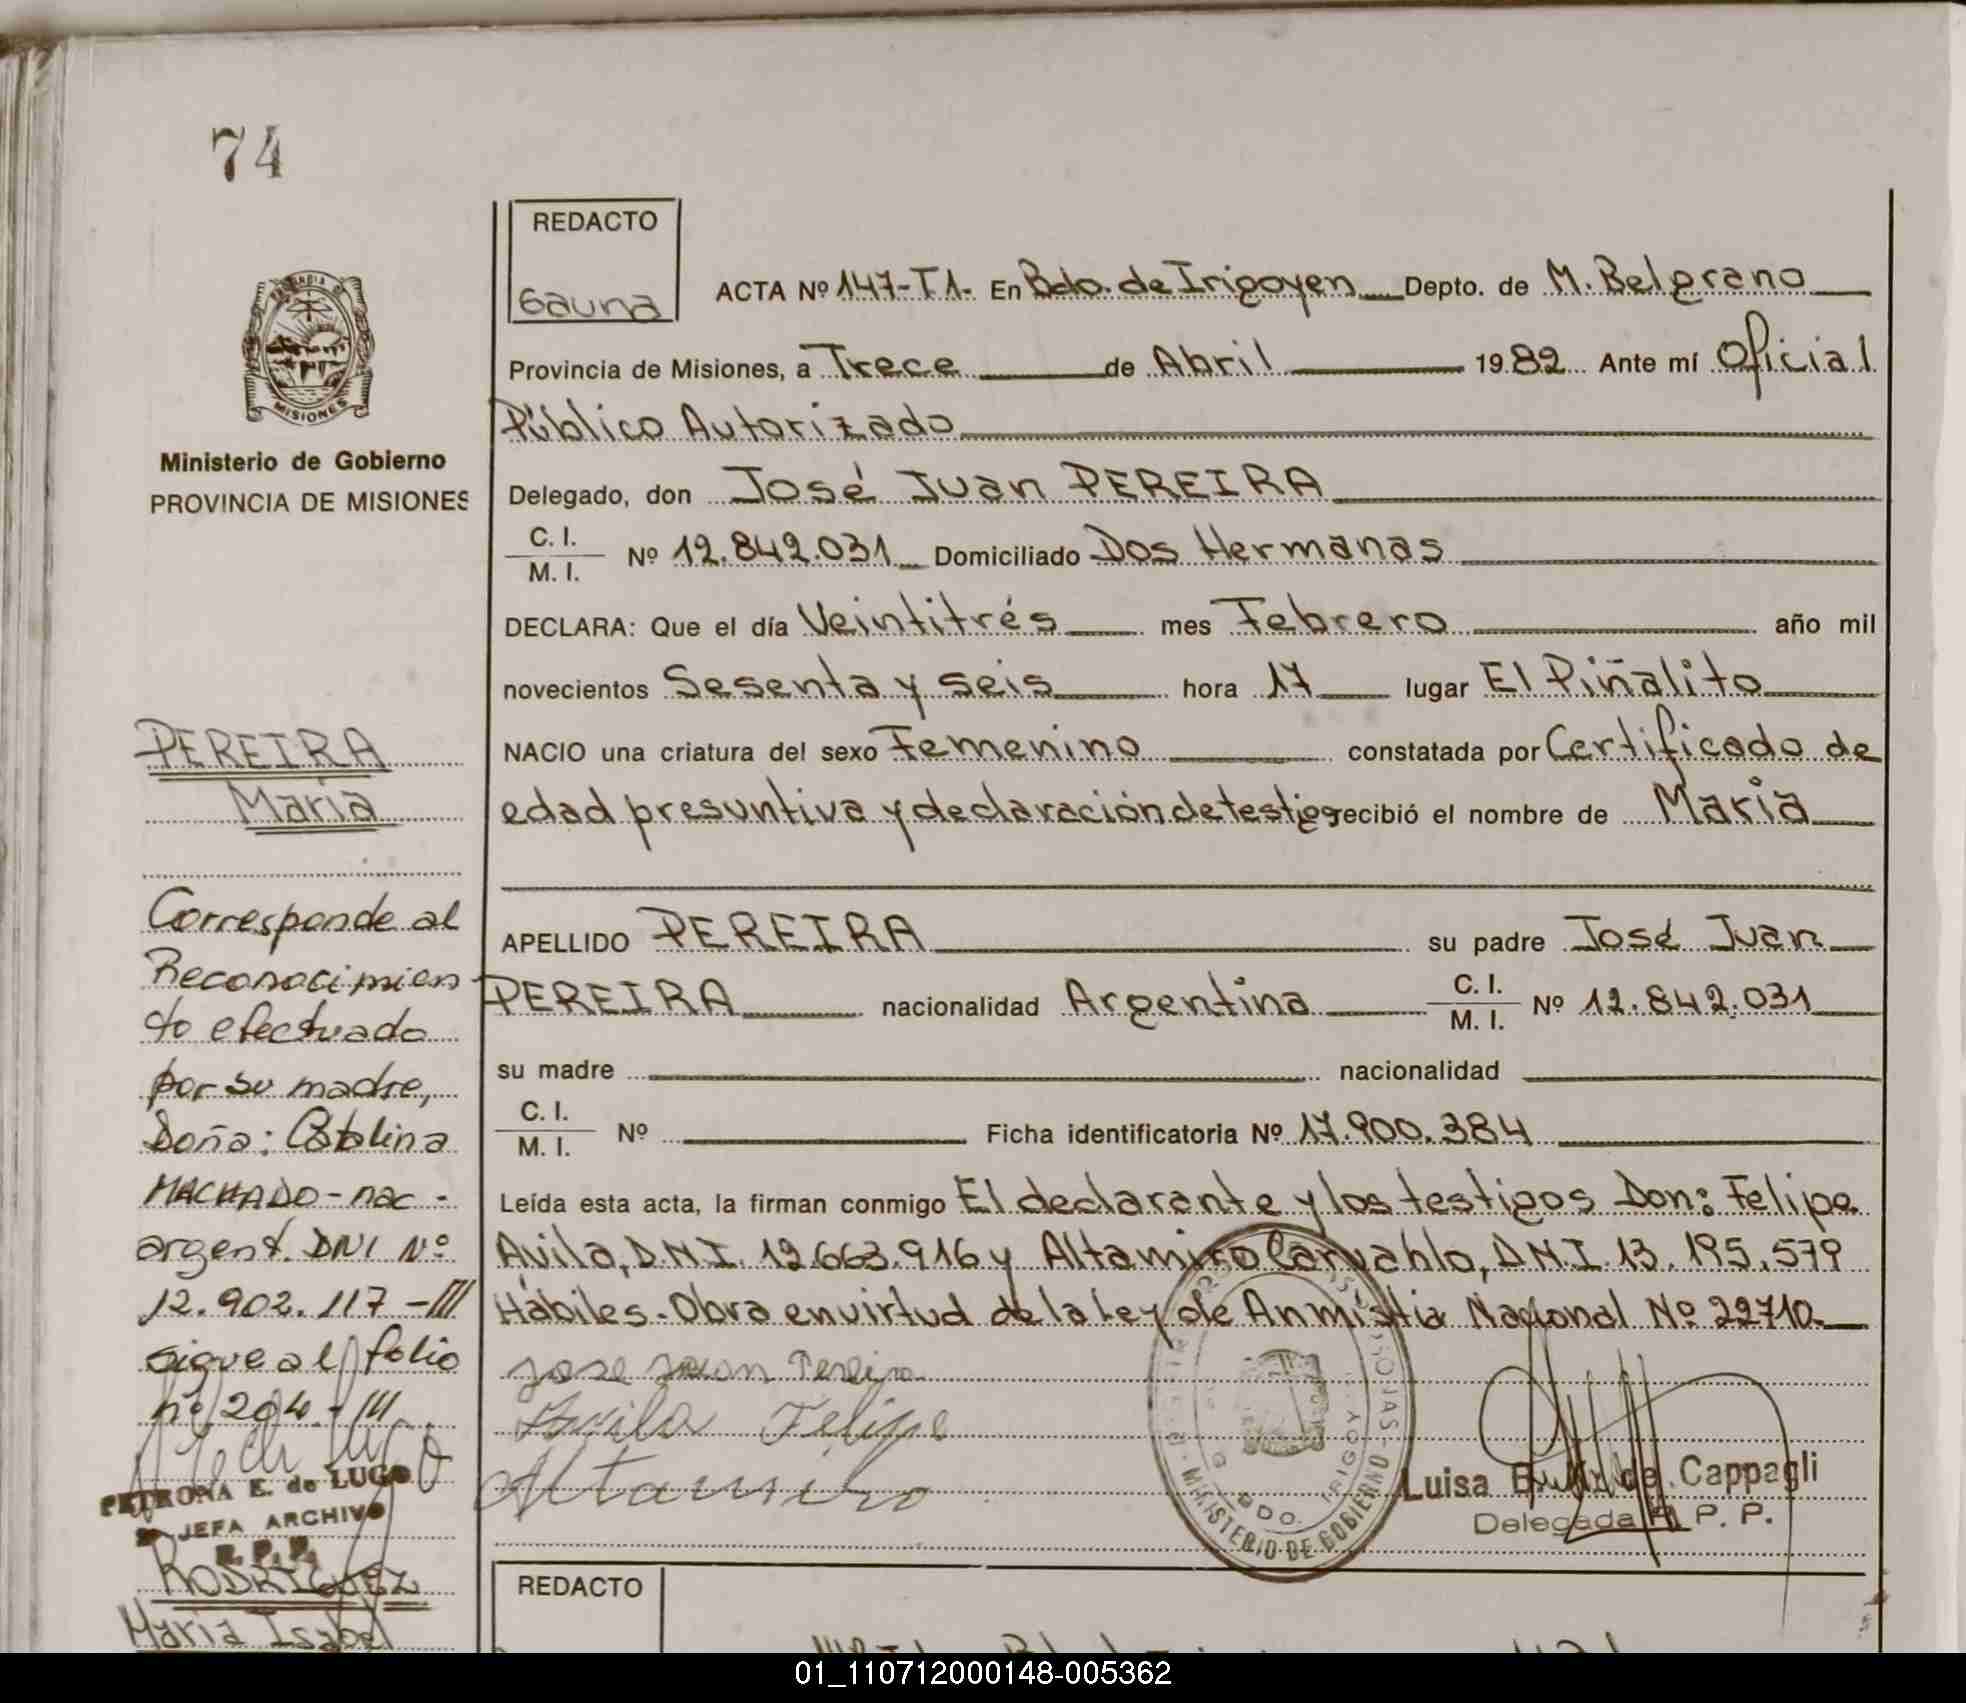 74
REDACTO
Gauna
ACTA Nº 147-T1- En Bdo. de Irigoyen Depto. de M. Belgrano
Provincia de Misiones, a Trece de Abril 1982 Ante mí Oficial
Público Autorizado
Delegado, don José Juan PEREIRA
C. I.
M. I. Nº 12.842.031 Domiciliado Dos Hermanas
DECLARA: Que el día Veintitrés mes Febrero año mil
novecientos Sesenta y seis hora 17 lugar El Piñalito
NACIO una criatura del sexo Femenino constatada por Certificado de
edad presuntiva y declaración de testigos recibió el nombre de María
APELLIDO PEREIRA su padre José Juan
PEREIRA nacionalidad Argentina C. I. M. I. Nº 12.842.031
su madre nacionalidad
C. I.
M. I. Nº Ficha identificatoria Nº 17.900.384
Leída esta acta, la firman conmigo El declarante y los testigos Don: Felipe
Avila, D.N.I. 12.663.916 y Altamiro Carvahlo, D.N.I. 13.195.579
Hábiles.- Obra en virtud de la Ley de Anmistia Nacional Nº 22710.-
Jose Juan Pereira
Avila Felipe
Altamiro
MINISTERIO DE GOBIERNO
BDO. IRIGOY
Luisa de Cappagli
Delegada R. P. P.
MISIONES
Ministerio de Gobierno
PROVINCIA DE MISIONES
PEREIRA
María
Corresponde al
Reconocimien
to efectuado
por su madre,
Doña: Catalina
MACHADO - nac -
argent. DNI Nº
12.902.117 -///
sigue al folio
nº 204 - ///
PETRONA E. de LUGO
JEFA ARCHIVO
R. P. P.
RODRIGUEZ
María Isabel
REDACTO
01_110712000148-005362